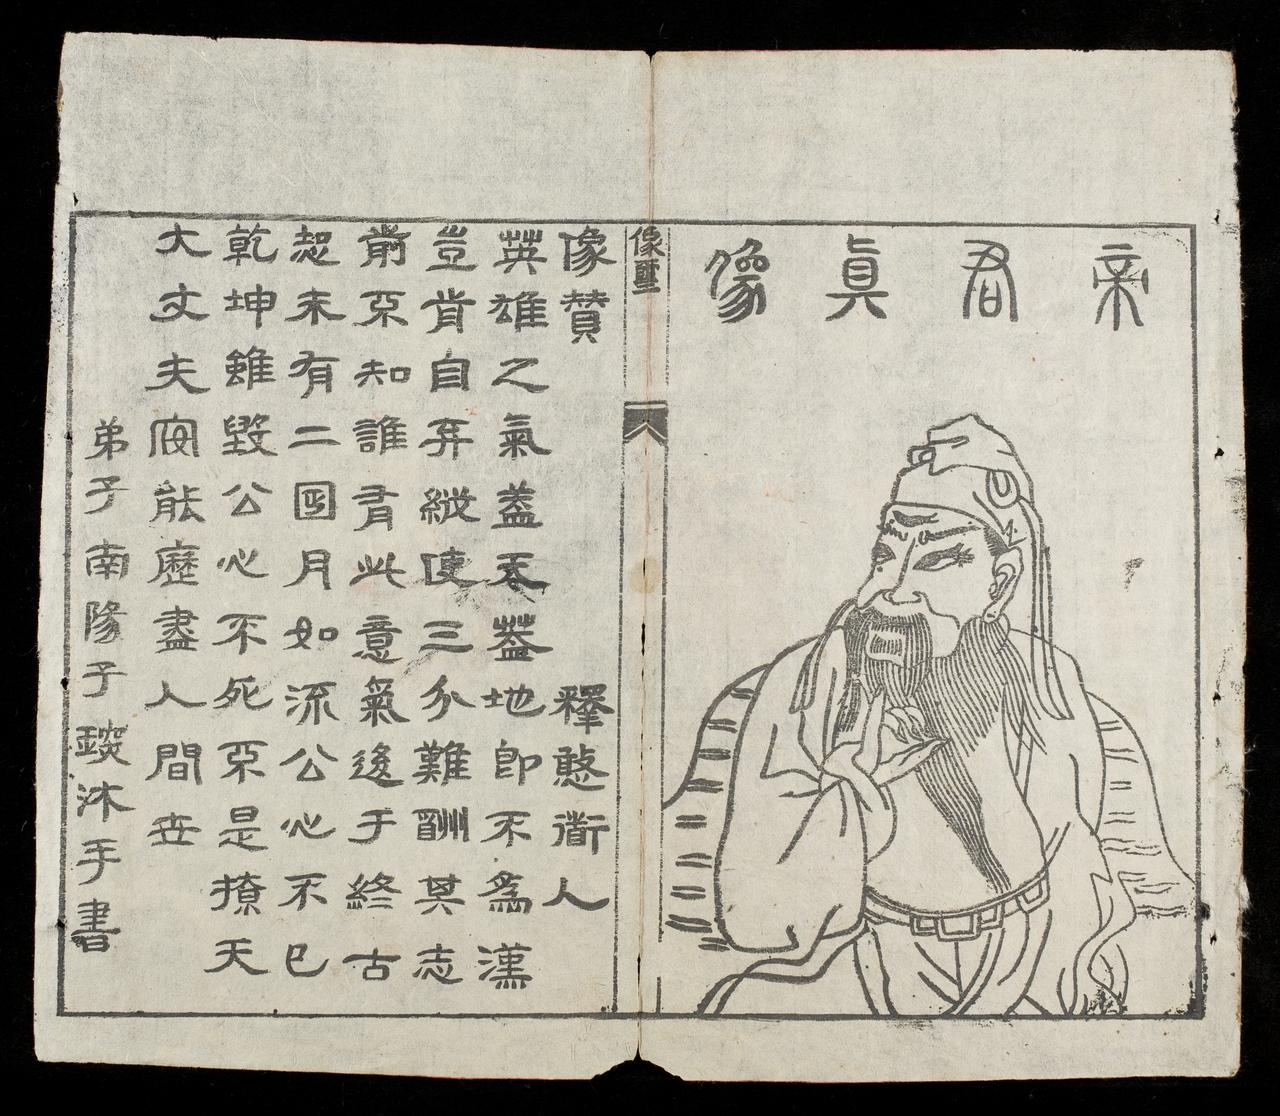 帝君眞像
像
像贊　釋憨衜人
英雄之氣蓋天蓋地即不爲漢
豈肯自弃縱使三分難酬其志
前不知誰有此意氣後于終古
起未有二日月如流公心不已
乾坤雖毀公心不死不是撩天
大丈夫安能歷盡人間世
弟子南陽子琰沐手書